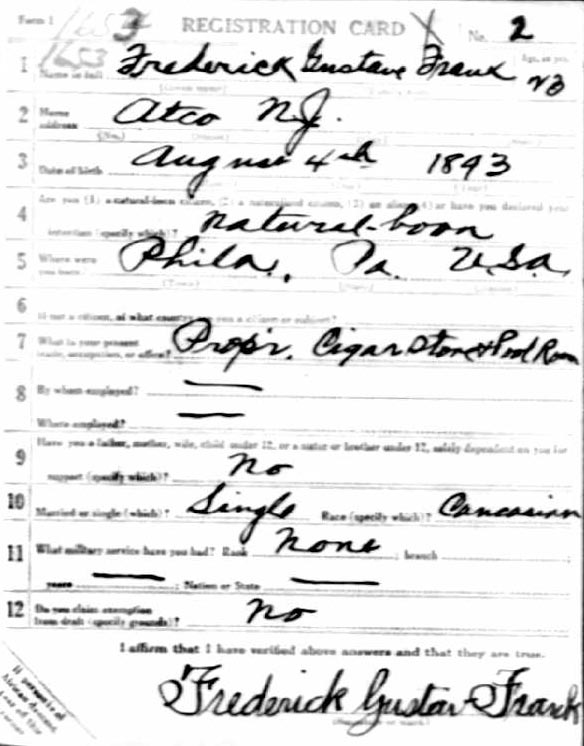 Form 1 1653 3 REGISTRATION CARD X No. 2
1653
1 Name in full Frederick Gustave Frank Age, in yrs. 23
(Given name) (Family name)
2 Home address Atco N.J.
(No.) (Street) (City) (State)
3 Date of birth August 4th 1893
(Month) (Day) (Year)
4 Are you (1) a natural-born citizen, (2) a naturalized citizen, (3) an alien, (4) or have you declared your
intention (specify which)? natural-born
5 Where were you born? Phila., Pa. U.S.A.
(Town) (State) (Nation)
6 If not a citizen, of what country are you a citizen or subject?
7 What is your present trade, occupation, or office? Prop'r. Cigar Store & Pool Room
8 By whom employed? —
Where employed? —
9 Have you a father, mother, wife, child under 12, or a sister or brother under 12, solely dependent on you for
support (specify which)? No
10 Married or single (which)? Single Race (specify which)? Caucasian
11 What military service have you had? Rank None ; branch ;
years — ; Nation or State —
12 Do you claim exemption from draft (specify grounds)? No
I affirm that I have verified above answers and that they are true.
Frederick Gustav Frank
(Signature or mark)
If person is of
African descent